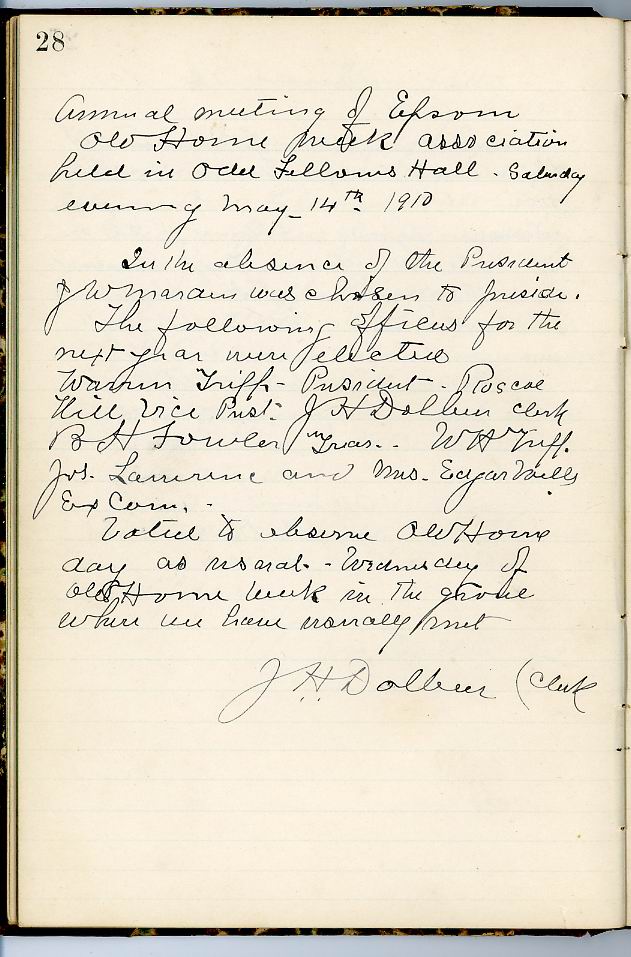 28
Annual meeting of Epsom
Old Home week association
held in Odd Fellows Hall - Saturday
evening May 14th 1910
In the absence of the President
J W Marden was chosen to preside.
The following officers for the
next year were elected
Warren Tripp - President - Roscoe
Hill Vice Prest. J H Dolbeer clerk
B H Fowler Treas. - W H Tripp.
Jos. Lawrence and Mrs. Edgar Wells
Ex Com. -
Voted to observe Old Home
day as usual - Wednesday of
Old Home week in the grove
where we have usually met
J H Dolbeer (Clerk